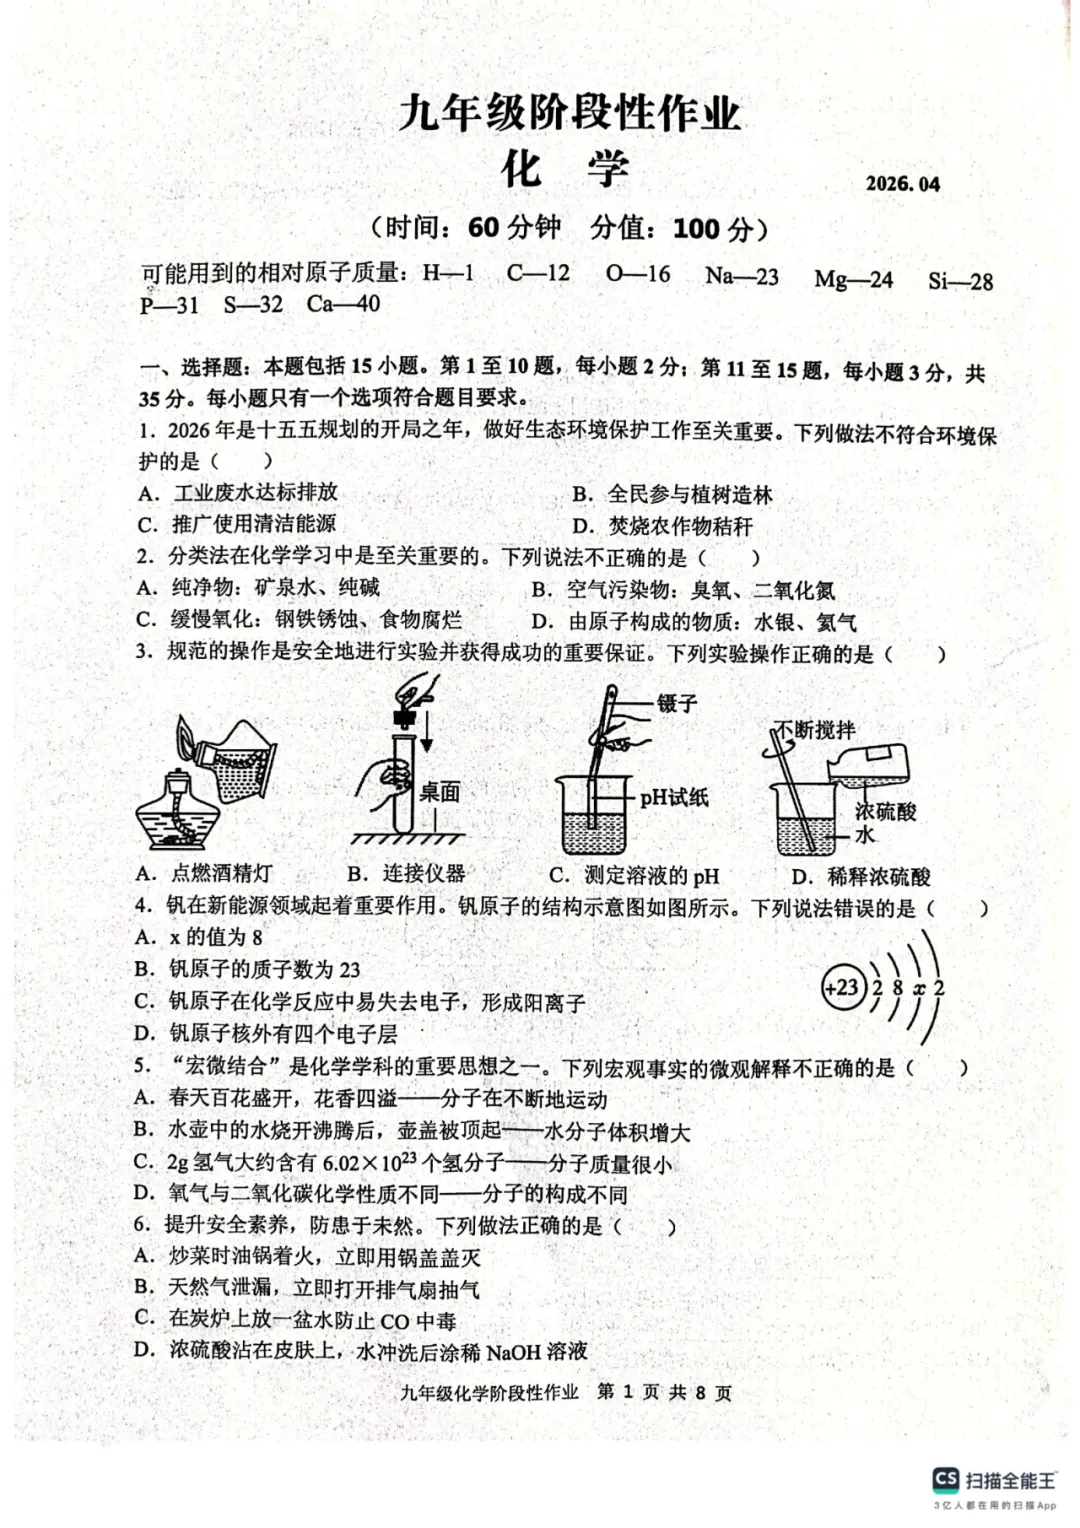 九年级阶段性作业
化 学
2026.04
（时间：60 分钟 分值：100 分）
可能用到的相对原子质量：H—1 C—12 O—16 Na—23 Mg—24 Si—28
P—31 S—32 Ca—40
一、选择题：本题包括 15 小题。第 1 至 10 题，每小题 2 分；第 11 至 15 题，每小题 3 分，共
35 分。每小题只有一个选项符合题目要求。
1．2026 年是十五五规划的开局之年，做好生态环境保护工作至关重要。下列做法不符合环境保
护的是（ ）
A．工业废水达标排放 B．全民参与植树造林
C．推广使用清洁能源 D．焚烧农作物秸秆
2．分类法在化学学习中是至关重要的。下列说法不正确的是（ ）
A．纯净物：矿泉水、纯碱 B．空气污染物：臭氧、二氧化氮
C．缓慢氧化：钢铁锈蚀、食物腐烂 D．由原子构成的物质：水银、氦气
3．规范的操作是安全地进行实验并获得成功的重要保证。下列实验操作正确的是（ ）
桌面
镊子
pH试纸
不断搅拌
浓硫酸
水
A．点燃酒精灯 B．连接仪器 C．测定溶液的 pH D．稀释浓硫酸
4．钒在新能源领域起着重要作用。钒原子的结构示意图如图所示。下列说法错误的是（ ）
A．x 的值为 8
B．钒原子的质子数为 23
C．钒原子在化学反应中易失去电子，形成阳离子
D．钒原子核外有四个电子层
+23 2 8 x 2
5．“宏微结合”是化学学科的重要思想之一。下列宏观事实的微观解释不正确的是（ ）
A．春天百花盛开，花香四溢——分子在不断地运动
B．水壶中的水烧开沸腾后，壶盖被顶起——水分子体积增大
C．2g 氢气大约含有 6.02×10²³ 个氢分子——分子质量很小
D．氧气与二氧化碳化学性质不同——分子的构成不同
6．提升安全素养，防患于未然。下列做法正确的是（ ）
A．炒菜时油锅着火，立即用锅盖盖灭
B．天然气泄漏，立即打开排气扇抽气
C．在炭炉上放一盆水防止 CO 中毒
D．浓硫酸沾在皮肤上，水冲洗后涂稀 NaOH 溶液
九年级化学阶段性作业 第 1 页 共 8 页
CS 扫描全能王
3亿人都在用的扫描App